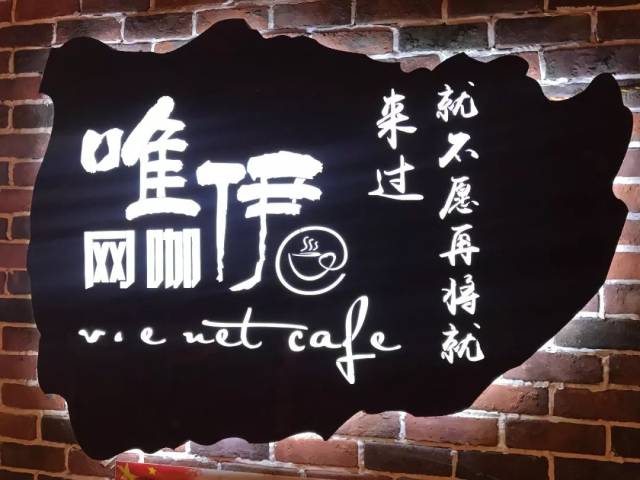 唯伊
网咖
v.e net cafe
来过
就不愿再将就